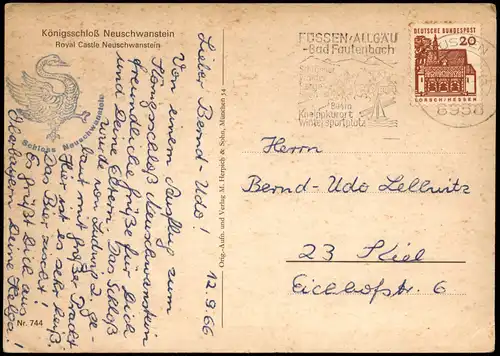 Königsschloß Neuschwanstein
Royal Castle Neuschwanstein
Schloss Neuschwanstein
Nr. 744
12.9.66
Lieber Bernd-Udo!
Von einem Ausflug zum
Königsschloß Neuschwanstein
freundliche Grüße für Dich
und Deine Eltern. Das Schloß
wurde von Ludwig 2. ge-
baut mit großer Pracht
Hier ist es sehr heiß.
Das Bier zischt!
Es grüßt Dich aus
Oberbayern Deine Helga!
Orig.-Aufn. und Verlag M. Herpich & Sohn, München 54
FÜSSEN/ALLGÄU
-Bad Faulenbach
Kneippkurort
Wintersportplatz
8958
DEUTSCHE BUNDESPOST
20
LORSCH/HESSEN
Herrn
Bernd-Udo Lellwitz
23 Kiel
Eichhofstr. 6